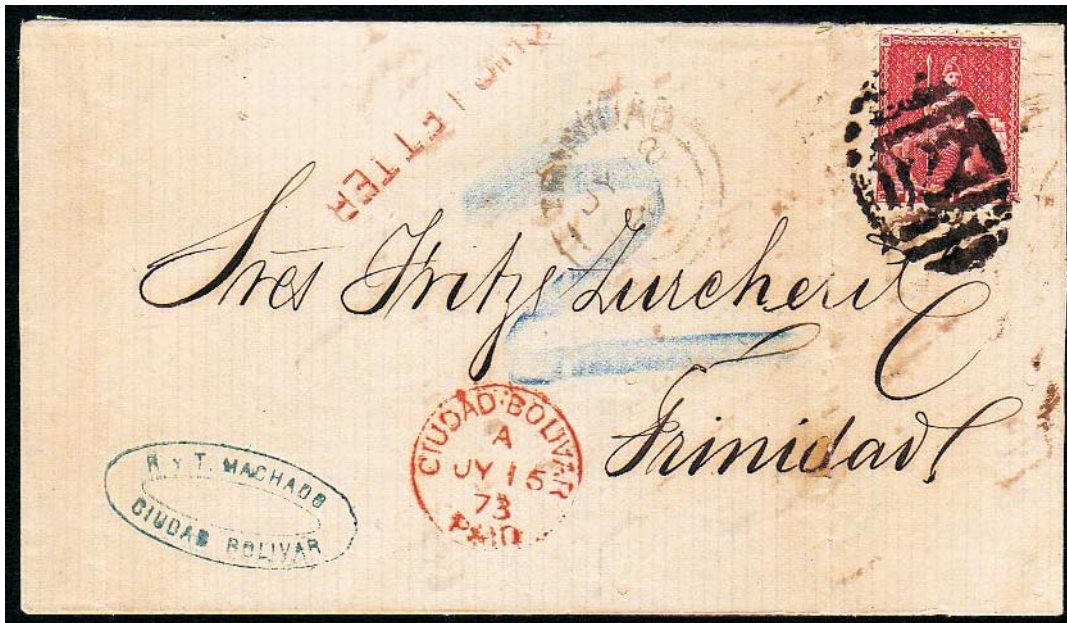 LETTER
TRINIDAD
JY
Sres Fritz Zurcher & C
Trinidad
CIUDAD·BOLIVAR
A
JY 15
73
PAID
R Y T. MACHADO
CIUDAD BOLIVAR
2